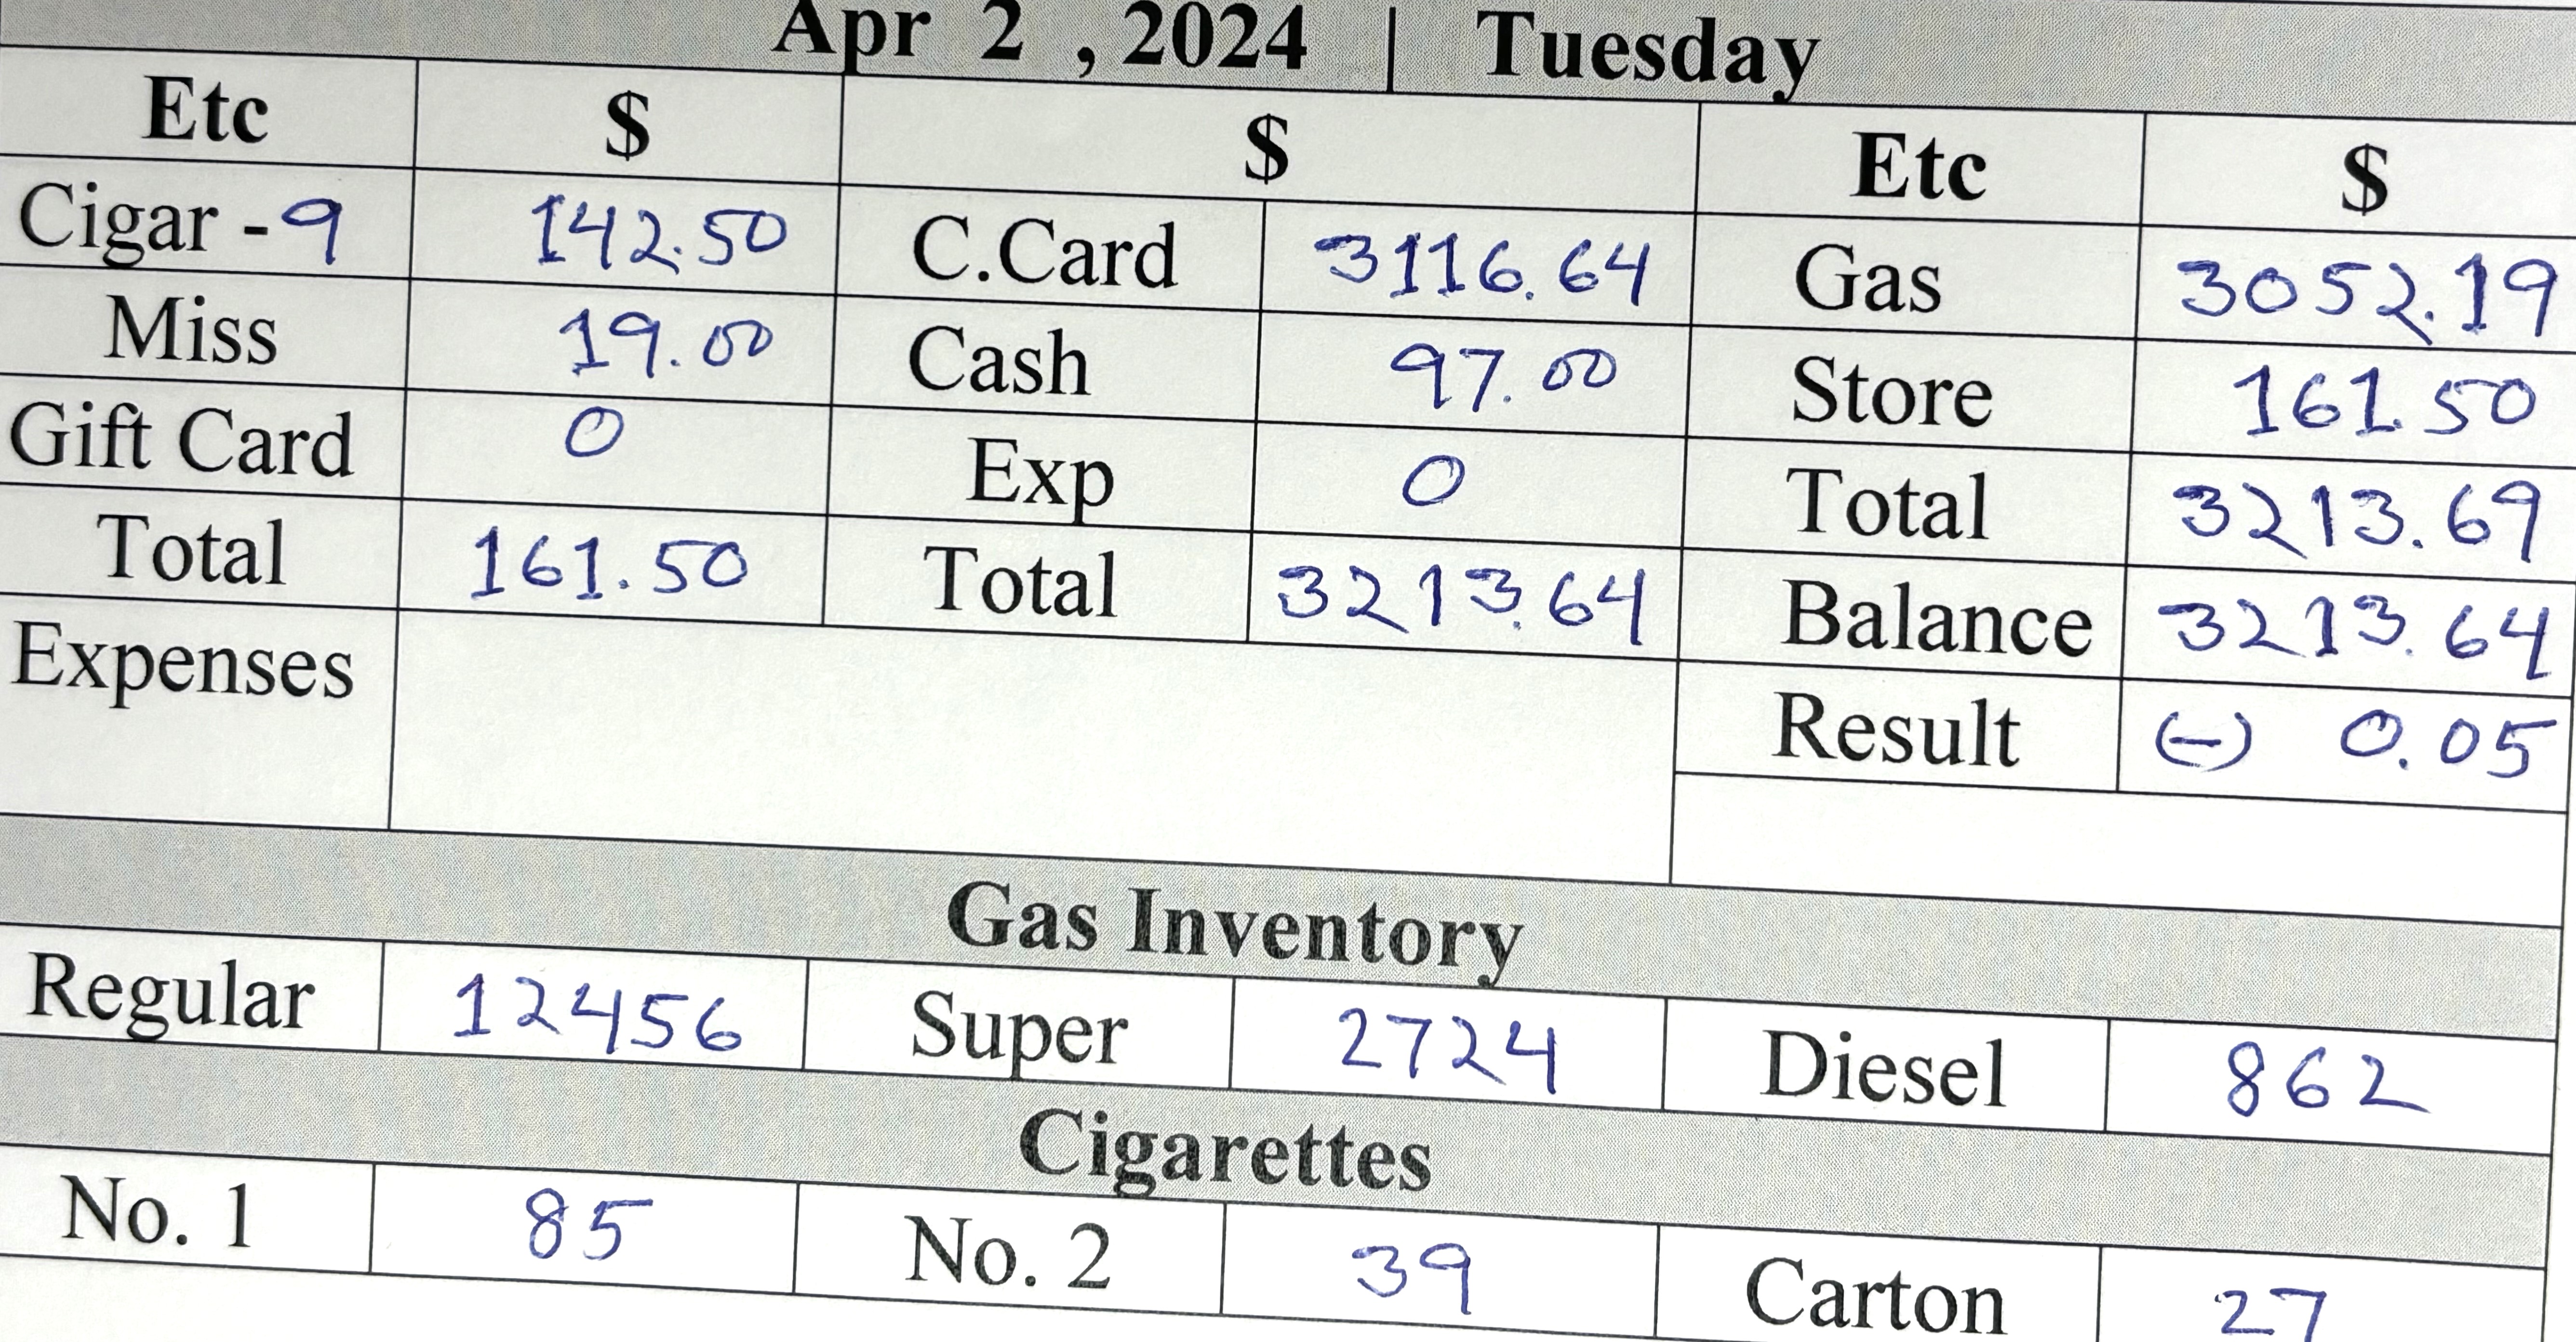 Apr 2 , 2024 | Tuesday
Etc $ $ Etc $
Cigar - 9 142.50 C.Card 3116.64 Gas 3052.19
Miss 19.00 Cash 97.00 Store 161.50
Gift Card 0 Exp 0 Total 3213.69
Total 161.50 Total 3213.64 Balance 3213.64
Expenses Result (-) 0.05
Gas Inventory
Regular 12456 Super 2724 Diesel 862
Cigarettes
No. 1 85 No. 2 39 Carton 27